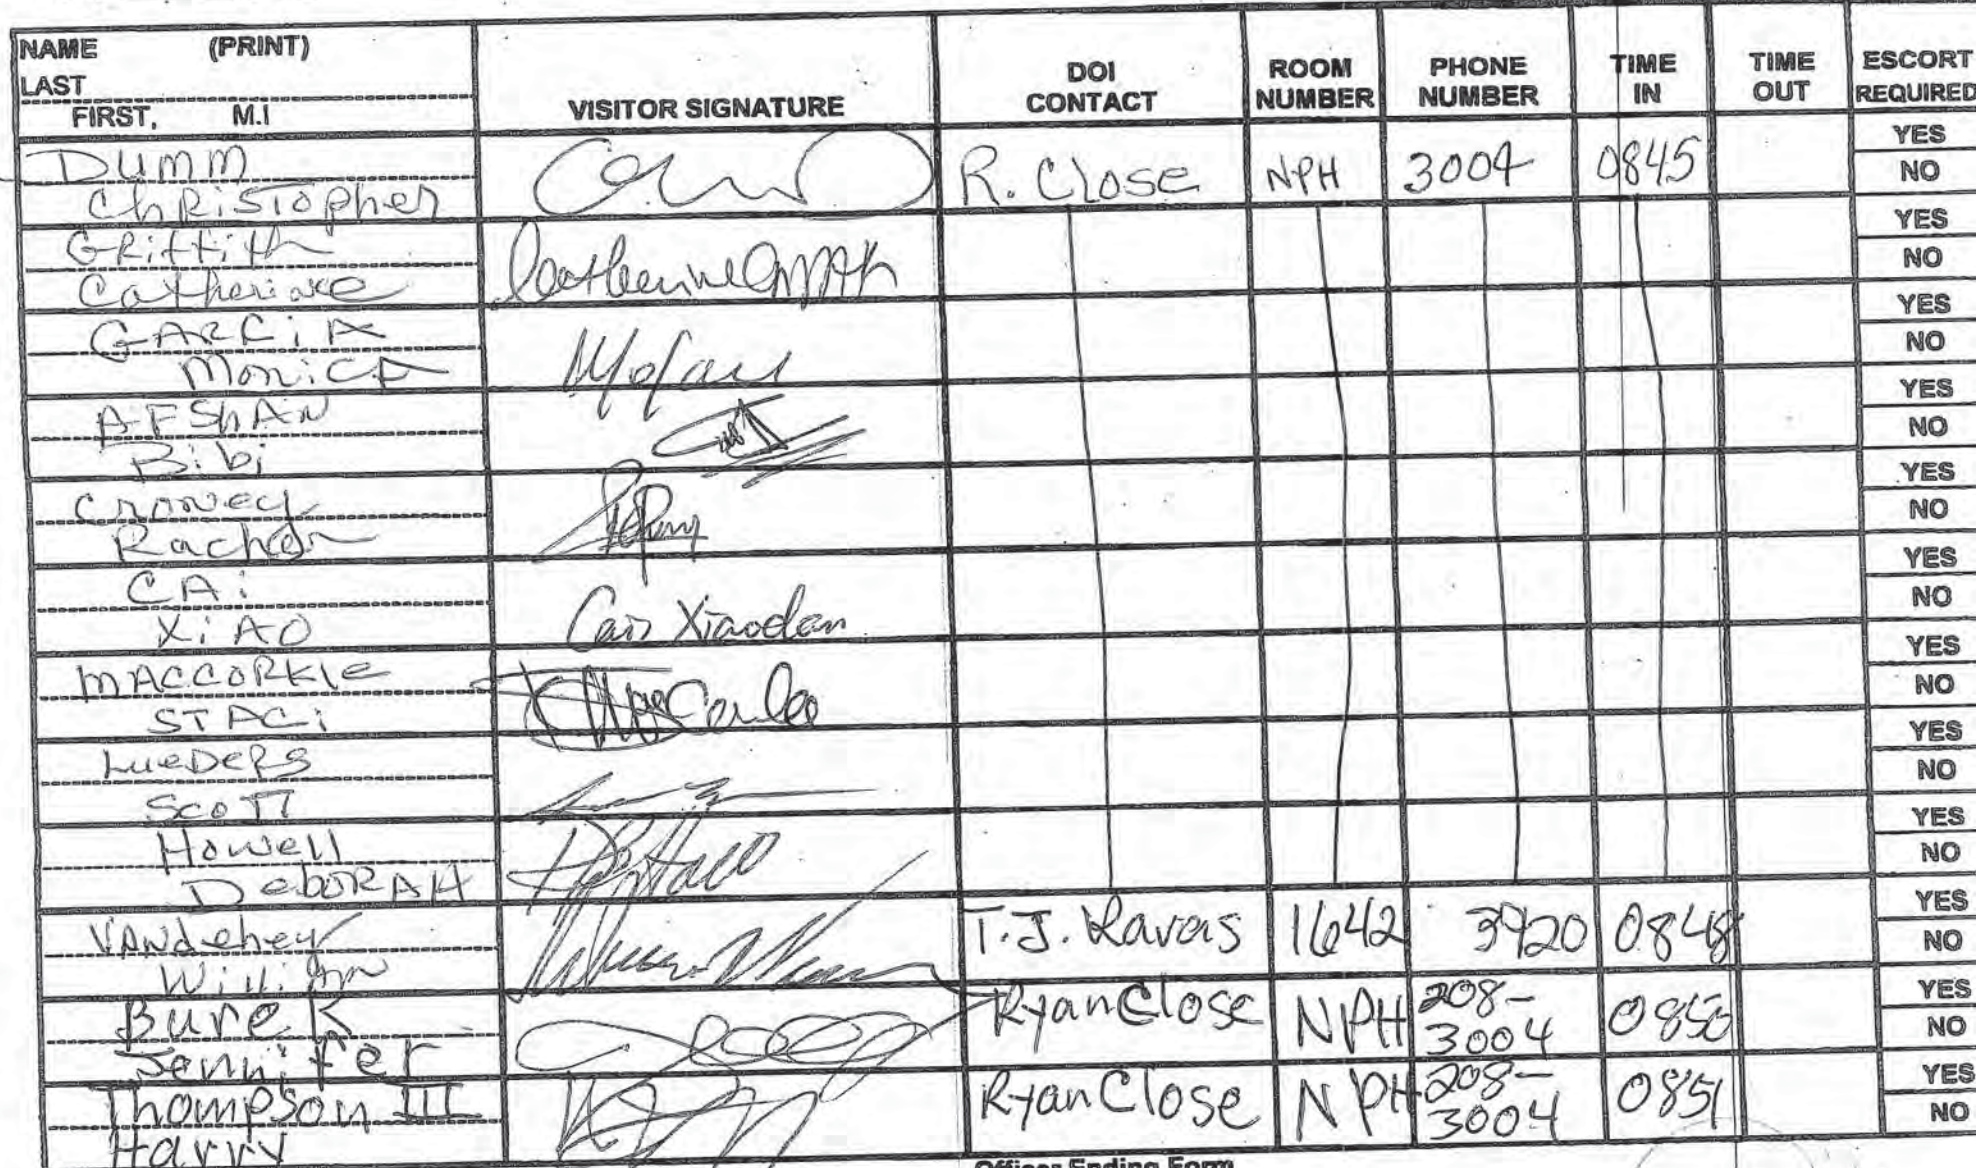 NAME (PRINT)
LAST
FIRST, M.I
VISITOR SIGNATURE
DOI CONTACT
ROOM NUMBER
PHONE NUMBER
TIME IN
TIME OUT
ESCORT REQUIRED
DUMM
Christopher
R. Close NPH 3004 0845 YES NO
Griffith
Catherine
Catherine Griffith YES NO
GARCiA
MoniCA
YES NO
AFShAN
Bibi
YES NO
Rachel
YES NO
CAi
XiAO
Cai Xiaodan YES NO
MACCORKle
STACi
YES NO
LueDeRS
Scott
YES NO
Howell
DeboRAH
YES NO
VANdehey
William
T.J. 1642 3920 0848 YES NO
Burek
Jennifer
Ryan Close NPH 208-3004 0850 YES NO
Thompson III
Harry
Ryan Close NPH 208-3004 0851 YES NO
Officer Ending Form